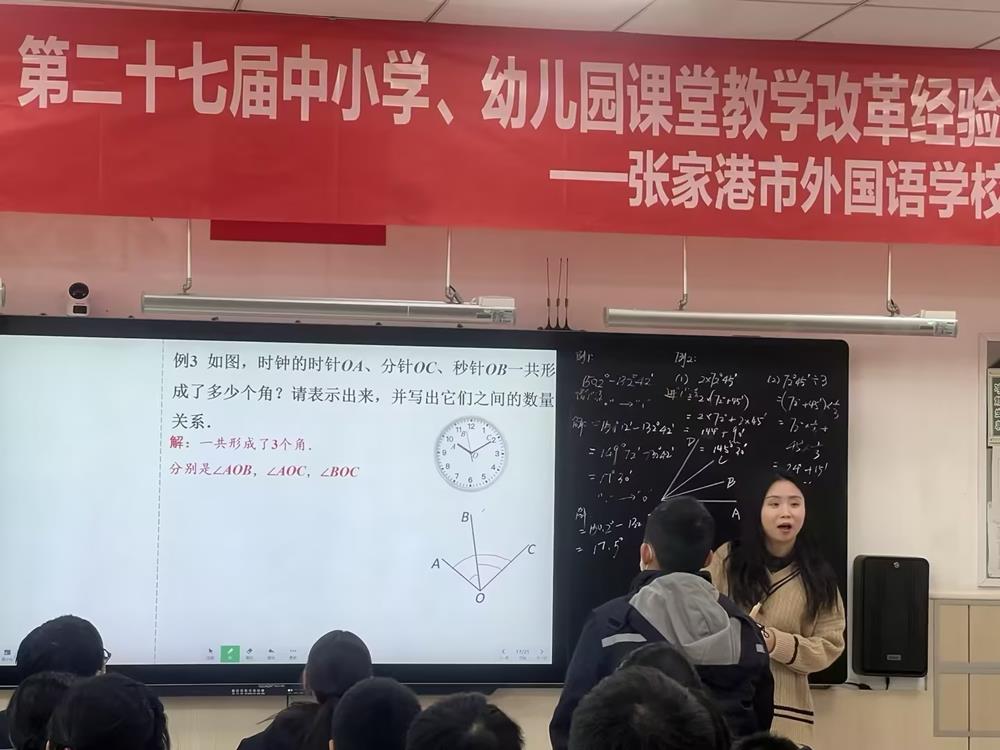 第二十七届中小学、幼儿园课堂教学改革经验
——张家港市外国语学校
例3 如图，时钟的时针OA、分针OC、秒针OB一共形
成了多少个角？请表示出来，并写出它们之间的数量
关系．
解：一共形成了3个角．
分别是∠AOB，∠AOC，∠BOC
B
A
C
O
例1:
例2:
(1) 2×72°45'
(2) 72°45'÷3
=2×(72°+45')
=2×72°+2×45'
=144°+90'
=145°30'
=24°+15'
=149°72'-132°42'
=17°30'
=17.5°
D
C
B
A
17/21